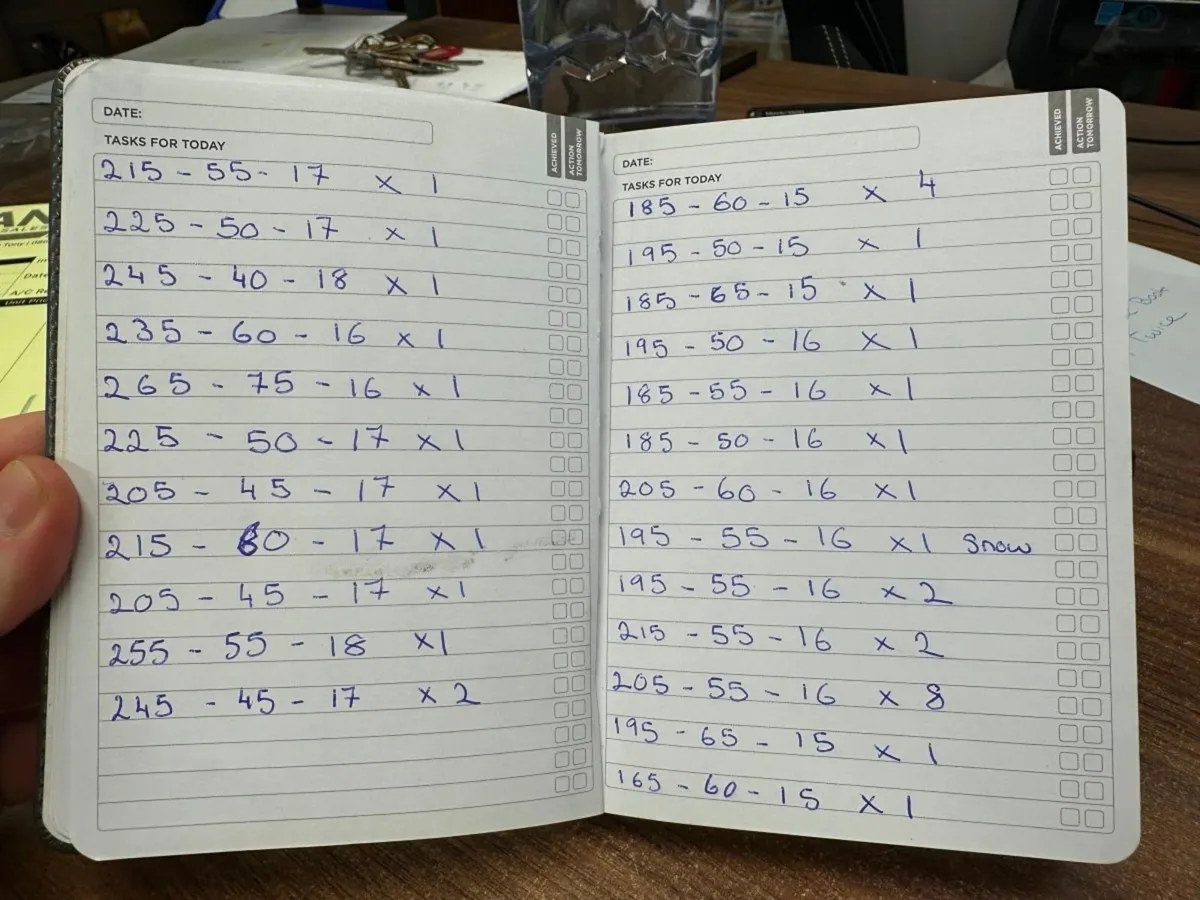 DATE:
TASKS FOR TODAY
ACHIEVED
ACTION TOMORROW
215 - 55 - 17 x 1
225 - 50 - 17 x 1
245 - 40 - 18 x 1
235 - 60 - 16 x 1
265 - 75 - 16 x 1
225 - 50 - 17 x 1
205 - 45 - 17 x 1
215 - 60 - 17 x 1
205 - 45 - 17 x 1
255 - 55 - 18 x 1
245 - 45 - 17 x 2
DATE:
TASKS FOR TODAY
ACHIEVED
ACTION TOMORROW
185 - 60 - 15 x 4
195 - 50 - 15 x 1
185 - 65 - 15 x 1
195 - 50 - 16 x 1
185 - 55 - 16 x 1
185 - 50 - 16 x 1
205 - 60 - 16 x 1
195 - 55 - 16 x 1 Snow
195 - 55 - 16 x 2
215 - 55 - 16 x 2
205 - 55 - 16 x 8
195 - 65 - 15 x 1
165 - 60 - 15 x 1
Twice